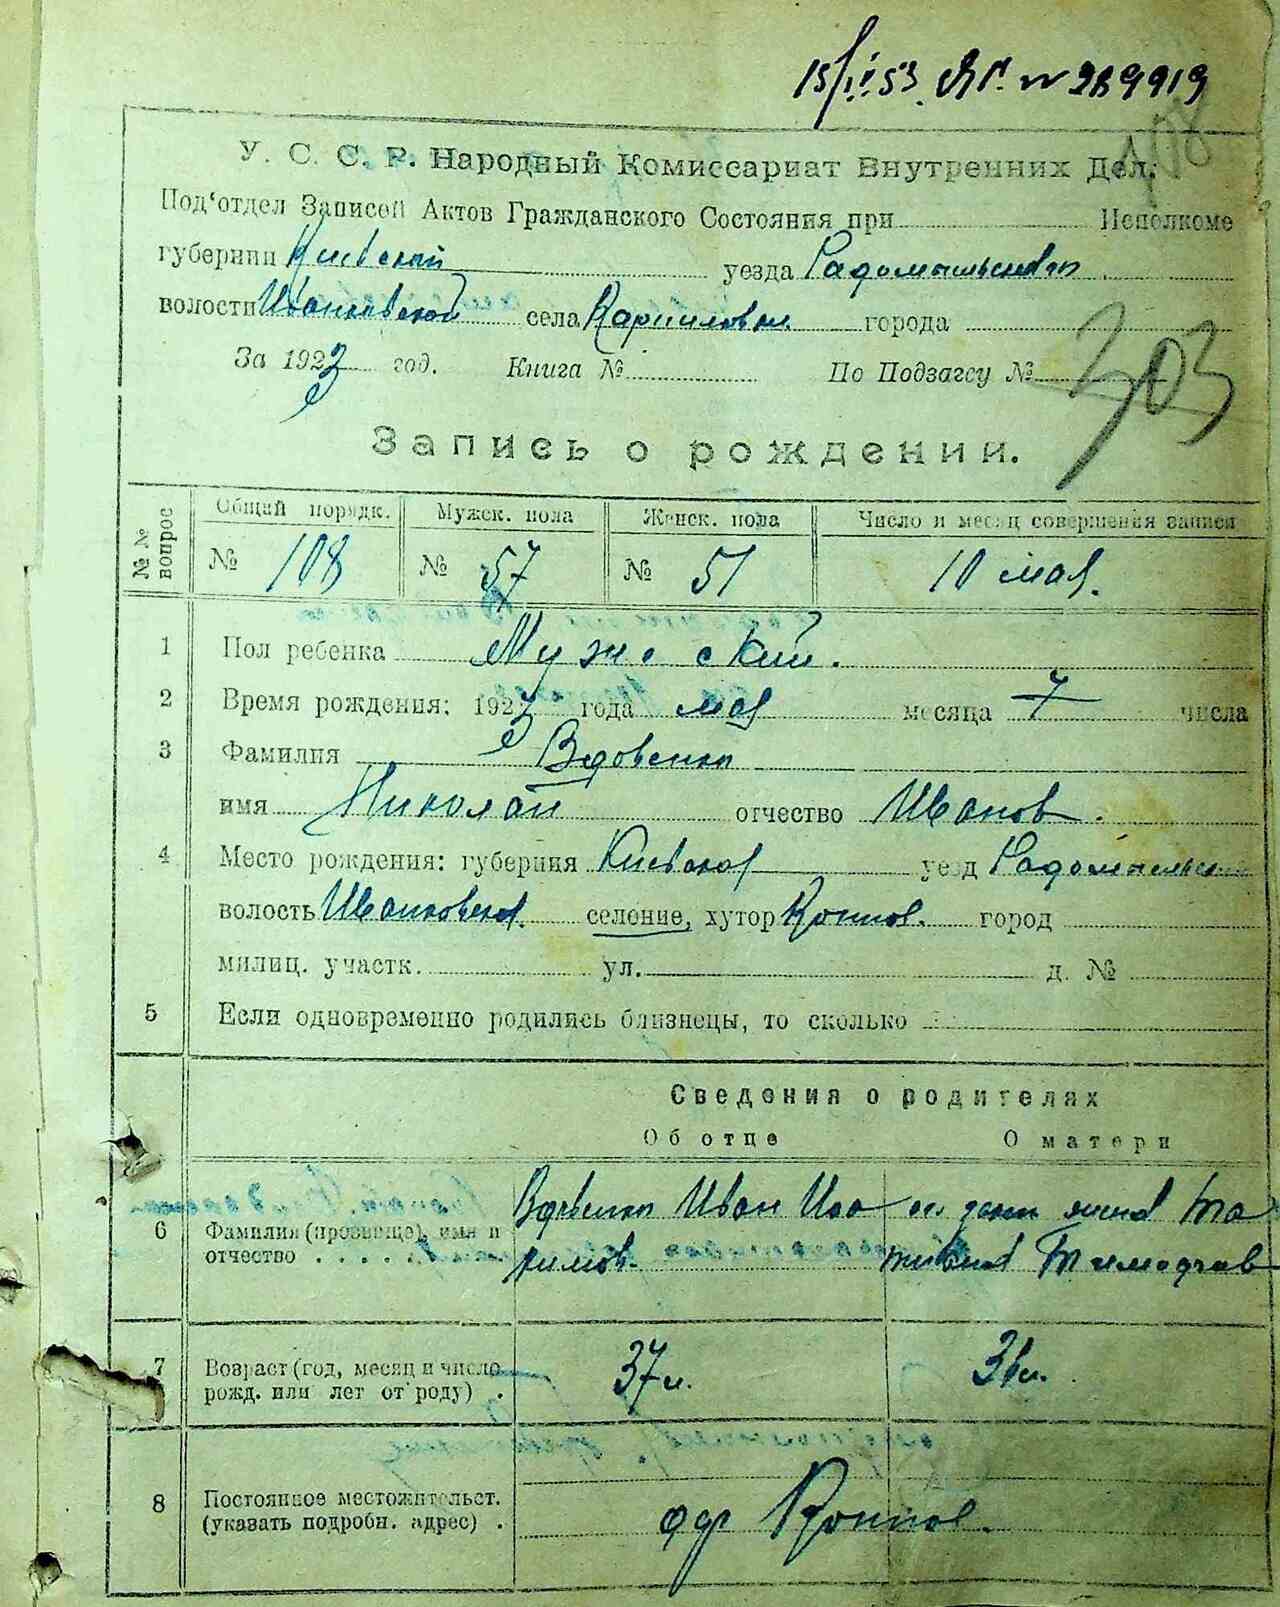 15/II 53 № 289919
108
У. С. С. Р. Народный Комиссариат Внутренних Дел.
Под'отдел Записей Актов Гражданского Состояния при Исполкоме
губернии Киевской уезда Радомысльского
волости Иванковской села Карпиловки города
За 1923 год. Книга № По Подзагсу №
303
Запись о рождении.
№ № вопрос Общий порядк. Мужск. пола Женск. пола Число и месяц совершения записи
№ 108 № 57 № 51 10 мая.
1 Пол ребенка Мужеский.
2 Время рождения: 1923 года мая месяца 7 числа
3 Фамилия Вдовенко
имя Николай отчество Иванов.
4 Место рождения: губерния Киевская уезд Радомысльский
волость Иванковская селение, хутор город
милиц. участк. ул. д. №
5 Если одновременно родились близнецы, то сколько
Сведения о родителях
Об отце О матери
6 Фамилия (прозвище), имя и
отчество . . . . .
Вдовенко Иван
7 Возраст (год, месяц и число
рожд. или лет от роду) .
37 л. 36 л.
8 Постоянное местожительст.
(указать подробн. адрес) .